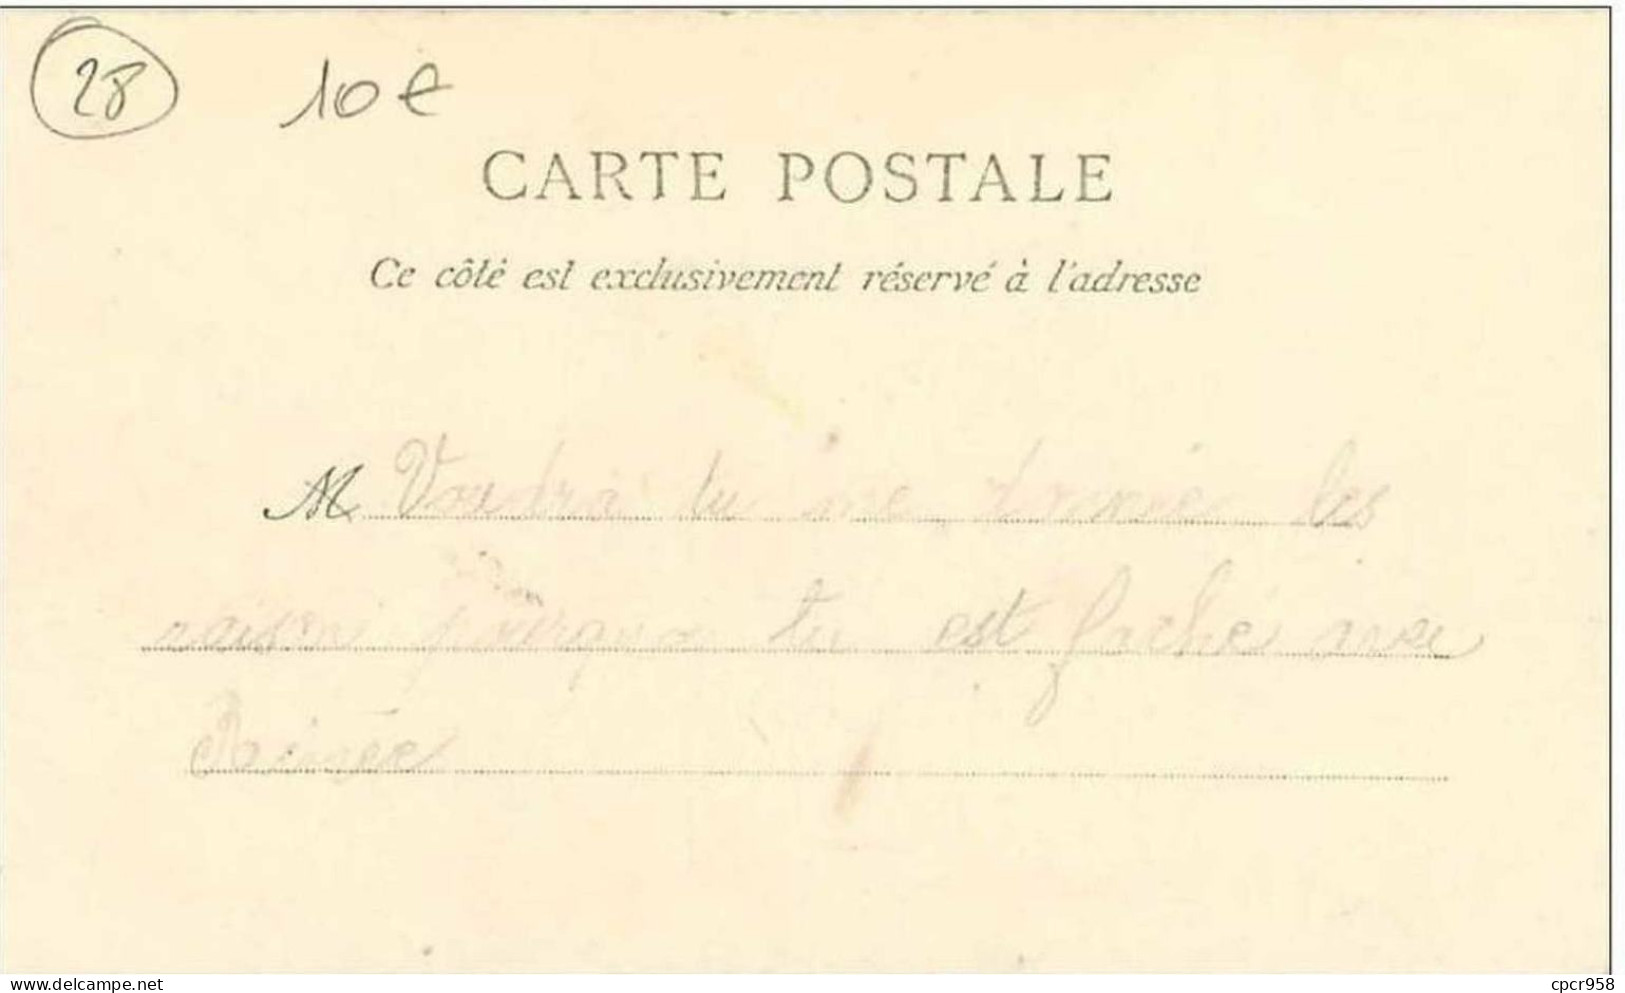 28 10€
CARTE POSTALE
Ce côté est exclusivement réservé à l'adresse
M Voudra tu me donné les
raison pourquoi tu est faché avec
delcampe.net
cpcr958